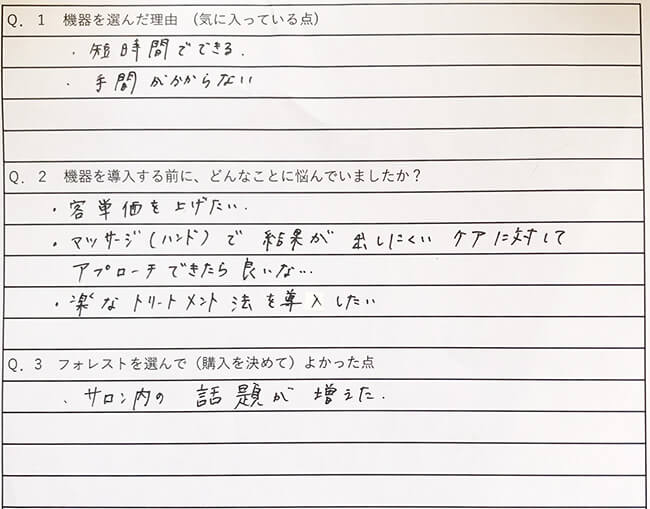 Q. 1 機器を選んだ理由 (気に入っている点)
・短時間でできる.
・手間がかからない
Q. 2 機器を導入する前に、どんなことに悩んでいましたか?
・客単価を上げたい.
・マッサージ(ハンド)で 結果が 出しにくい ケアに対して
アプローチできたら 良いな...
・楽な トリートメント 法を導入したい
Q. 3 フォレストを選んで(購入を決めて)よかった点
・サロン内の 話題が 増えた.